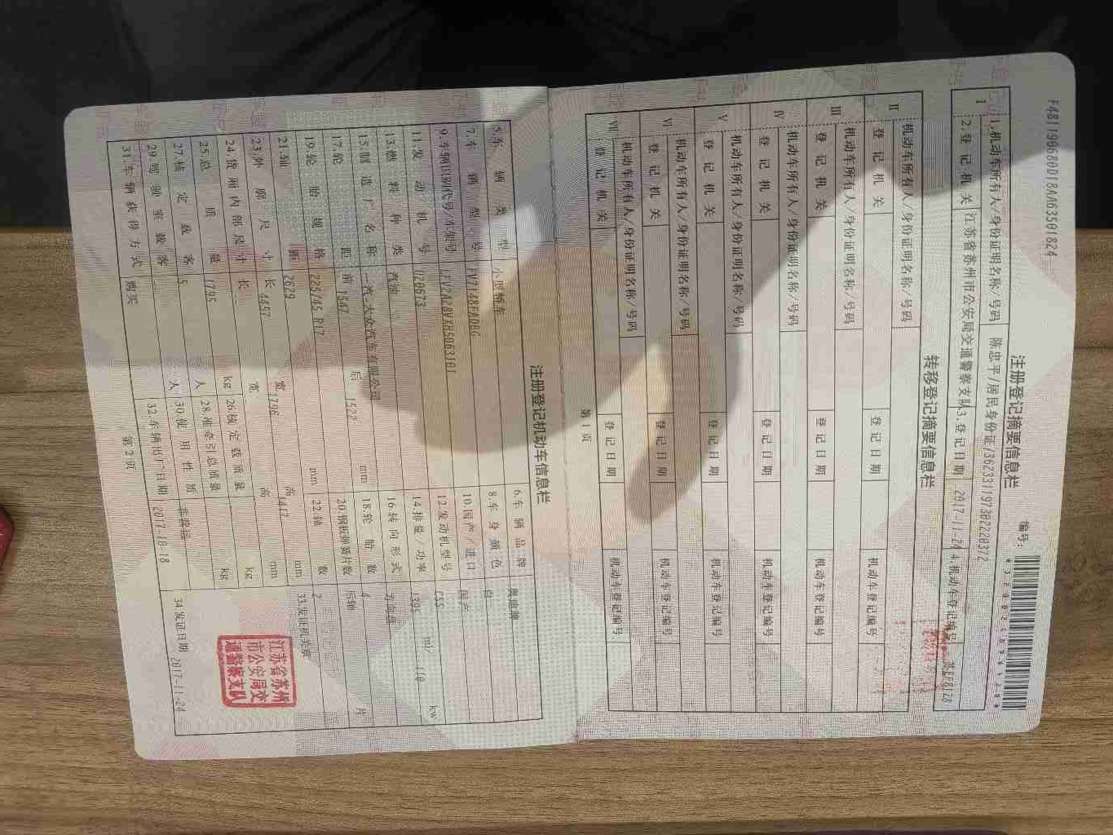 编号:
注册登记摘要信息栏
1 1.机动车所有人/身份证明名称/号码 陈忠平/居民身份证/362331197302220372
2.登记机关 江苏省苏州市公安局交通警察支队 3.登记日期 2017-11-24 4.机动车登记编号
转移登记摘要信息栏
II 机动车所有人/身份证明名称/号码
登记机关 登记日期 机动车登记编号
III 机动车所有人/身份证明名称/号码
登记机关 登记日期 机动车登记编号
IV 机动车所有人/身份证明名称/号码
登记机关 登记日期 机动车登记编号
V 机动车所有人/身份证明名称/号码
登记机关 登记日期 机动车登记编号
VI 机动车所有人/身份证明名称/号码
登记机关 登记日期 机动车登记编号
VII 机动车所有人/身份证明名称/号码
登记机关 登记日期 机动车登记编号
第1页
注册登记机动车信息栏
5.车辆类型 小型轿车 6.车辆品牌 奥迪牌
7.车辆型号 8.车身颜色 白
9.车辆识别代号/车架号 10.国产/进口 国产
11.发动机号 12.发动机型号 CSS
13.燃料种类 汽油 14.排量/功率 ml/ 110 kw
15.制造厂名称 一汽-大众汽车有限公司 16.转向形式 方向盘
17.轮距 前 1547 后 1522 mm 18.轮胎数 4
19.轮胎规格 225/45 R17 20.钢板弹簧片数 后轴 片
21.轴距 2629 mm 22.轴数 2
23.外廓尺寸 长 4457 宽 1796 高 1417 mm 33.发证机关章
24.货厢内部尺寸 长 宽 高 mm
25.总质量 1795 kg 26.核定载质量 kg
27.核定载客 5 人 28.准牵引总质量 kg
29.驾驶室载客 人 30.使用性质 非营运
31.车辆获得方式 购买 32.车辆出厂日期 2017-10-18 34.发证日期 2017-11-24
江苏省苏州
市公安局交
通警察支队
第2页